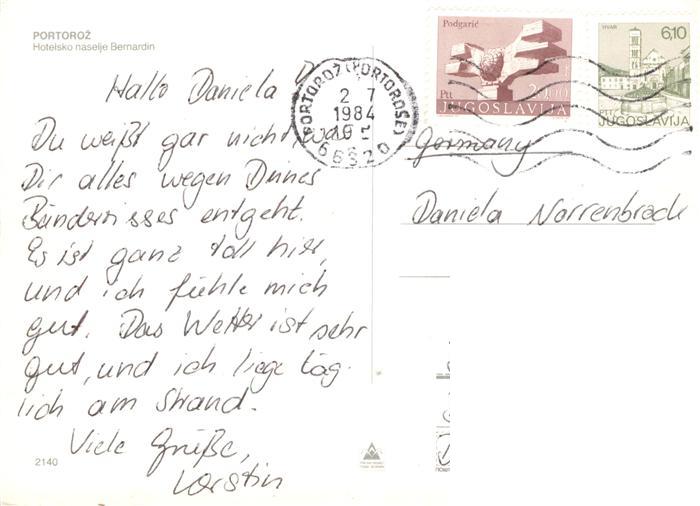 PORTOROŽ
Hotelsko naselje Bernardin
Hallo Daniela
Du weißt gar nicht, was
Dir alles wegen Deines
Bänderrisses entgeht.
Es ist ganz toll hier,
und ich fühle mich
gut. Das Wetter ist sehr
gut, und ich liege täg-
lich am Strand.
Viele Grüße,
Kerstin
2140
Podgarić
Ptt
JUGOSLAVIJA
HVAR
6,10
JUGOSLAVIJA
PORTOROŽ (PORTOROSE)
2 7
1984
66320
Germany
Daniela Norrenbrock